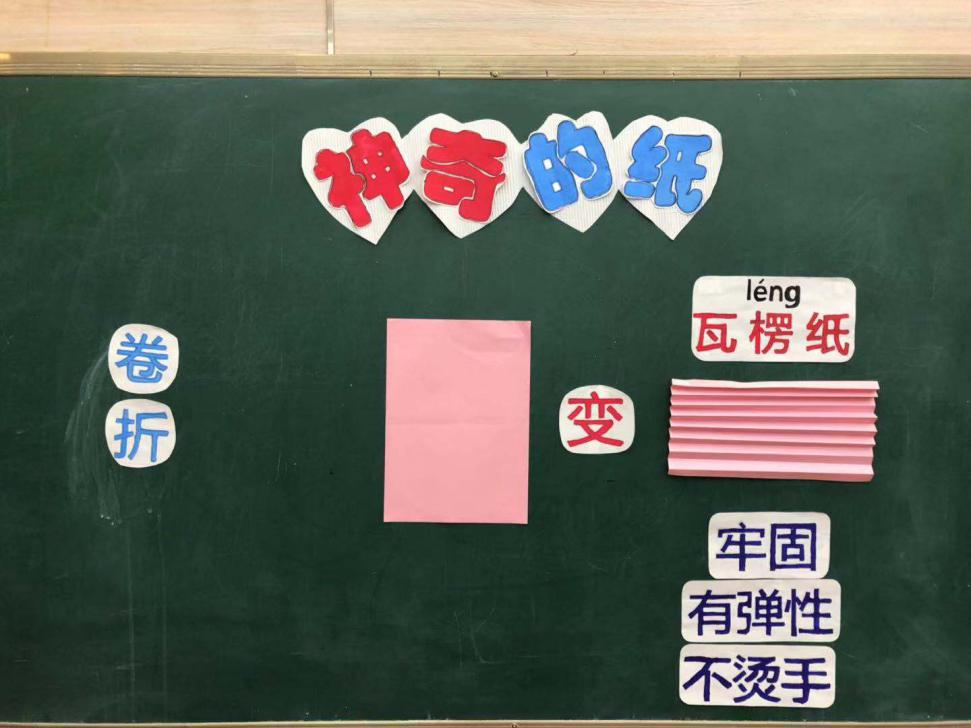 神奇的纸
卷
折
变
léng
瓦楞纸
牢固
有弹性
不烫手